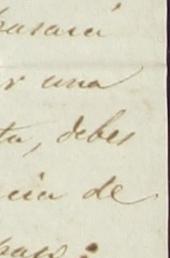 pasará
r una
ta, debes
cia de